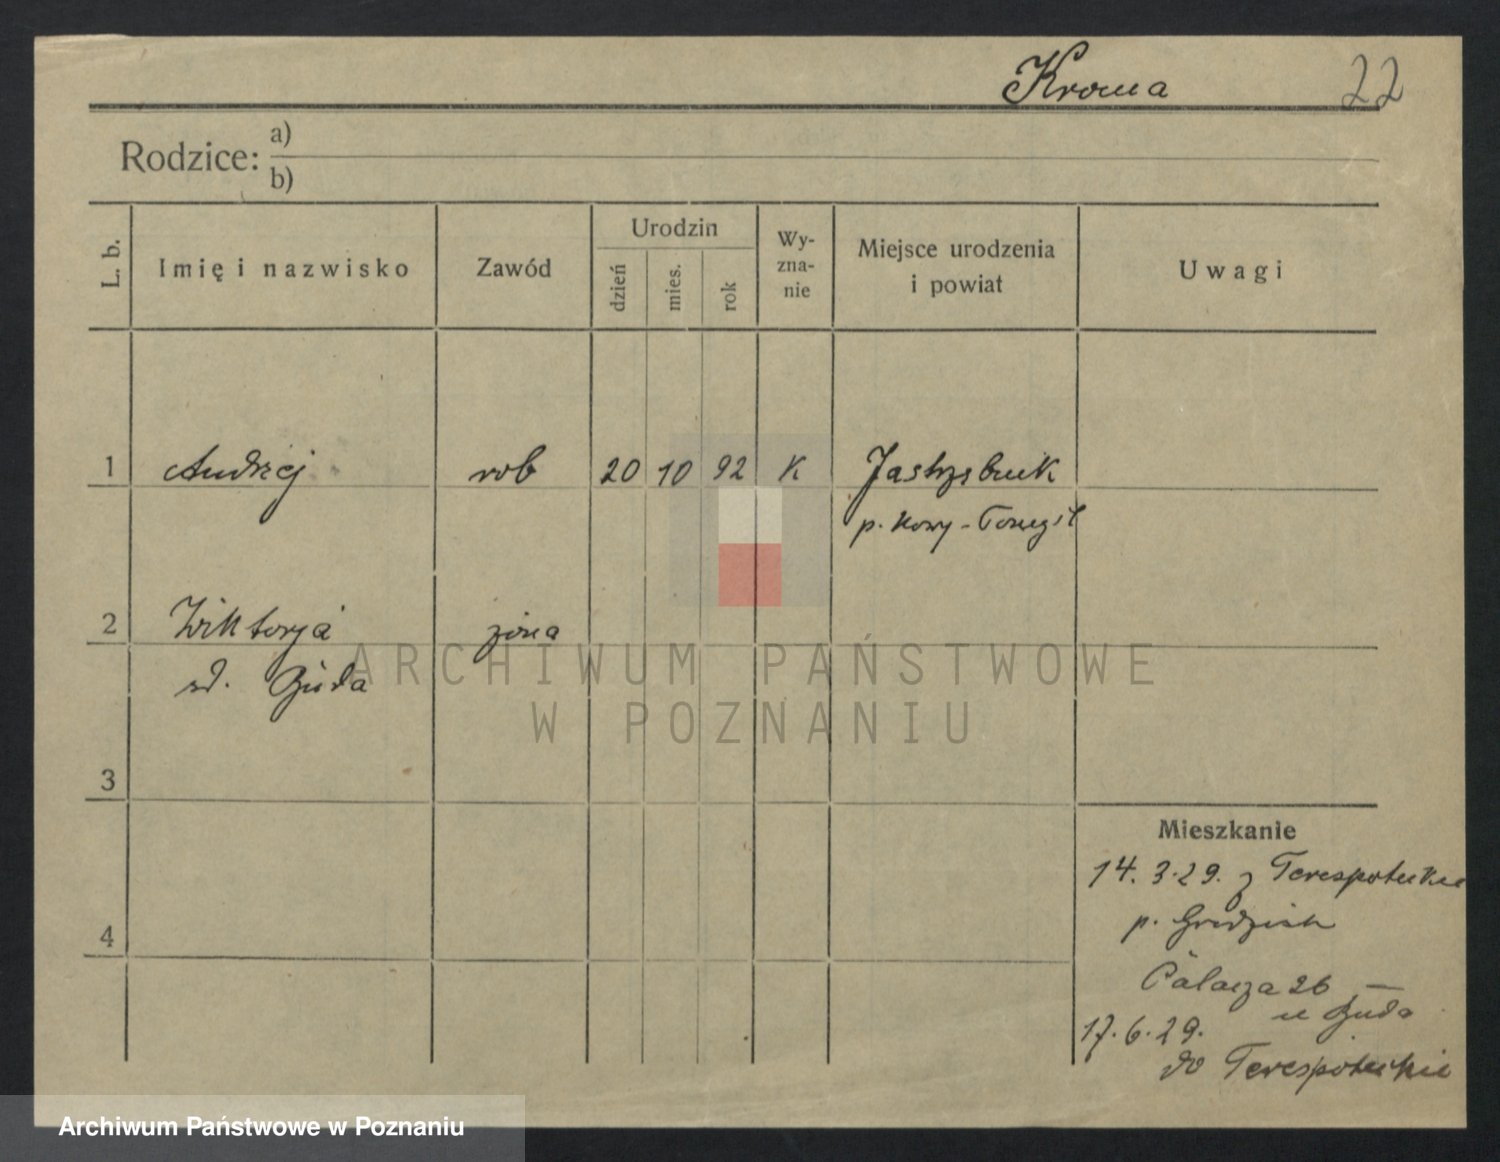 Kroma 22
Rodzice: a)
b)
L. b.
Imię i nazwisko
Zawód
Urodzin
dzień
mies.
rok
Wy-
zna-
nie
Miejsce urodzenia
i powiat
Uwagi
1 Andrzej rob 20 10 92 K
p. Nowy-Tomyśl
2 Wiktorja żona
ARCHIWUM PAŃSTWOWE
W POZNANIU
3
Mieszkanie
14.3.29. z
p. Grodzisk
4
Palacza 26
u
17.6.29.
do
Archiwum Państwowe w Poznaniu